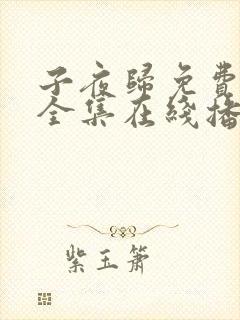 子夜歸免費
全集在綫播
紫玉簫